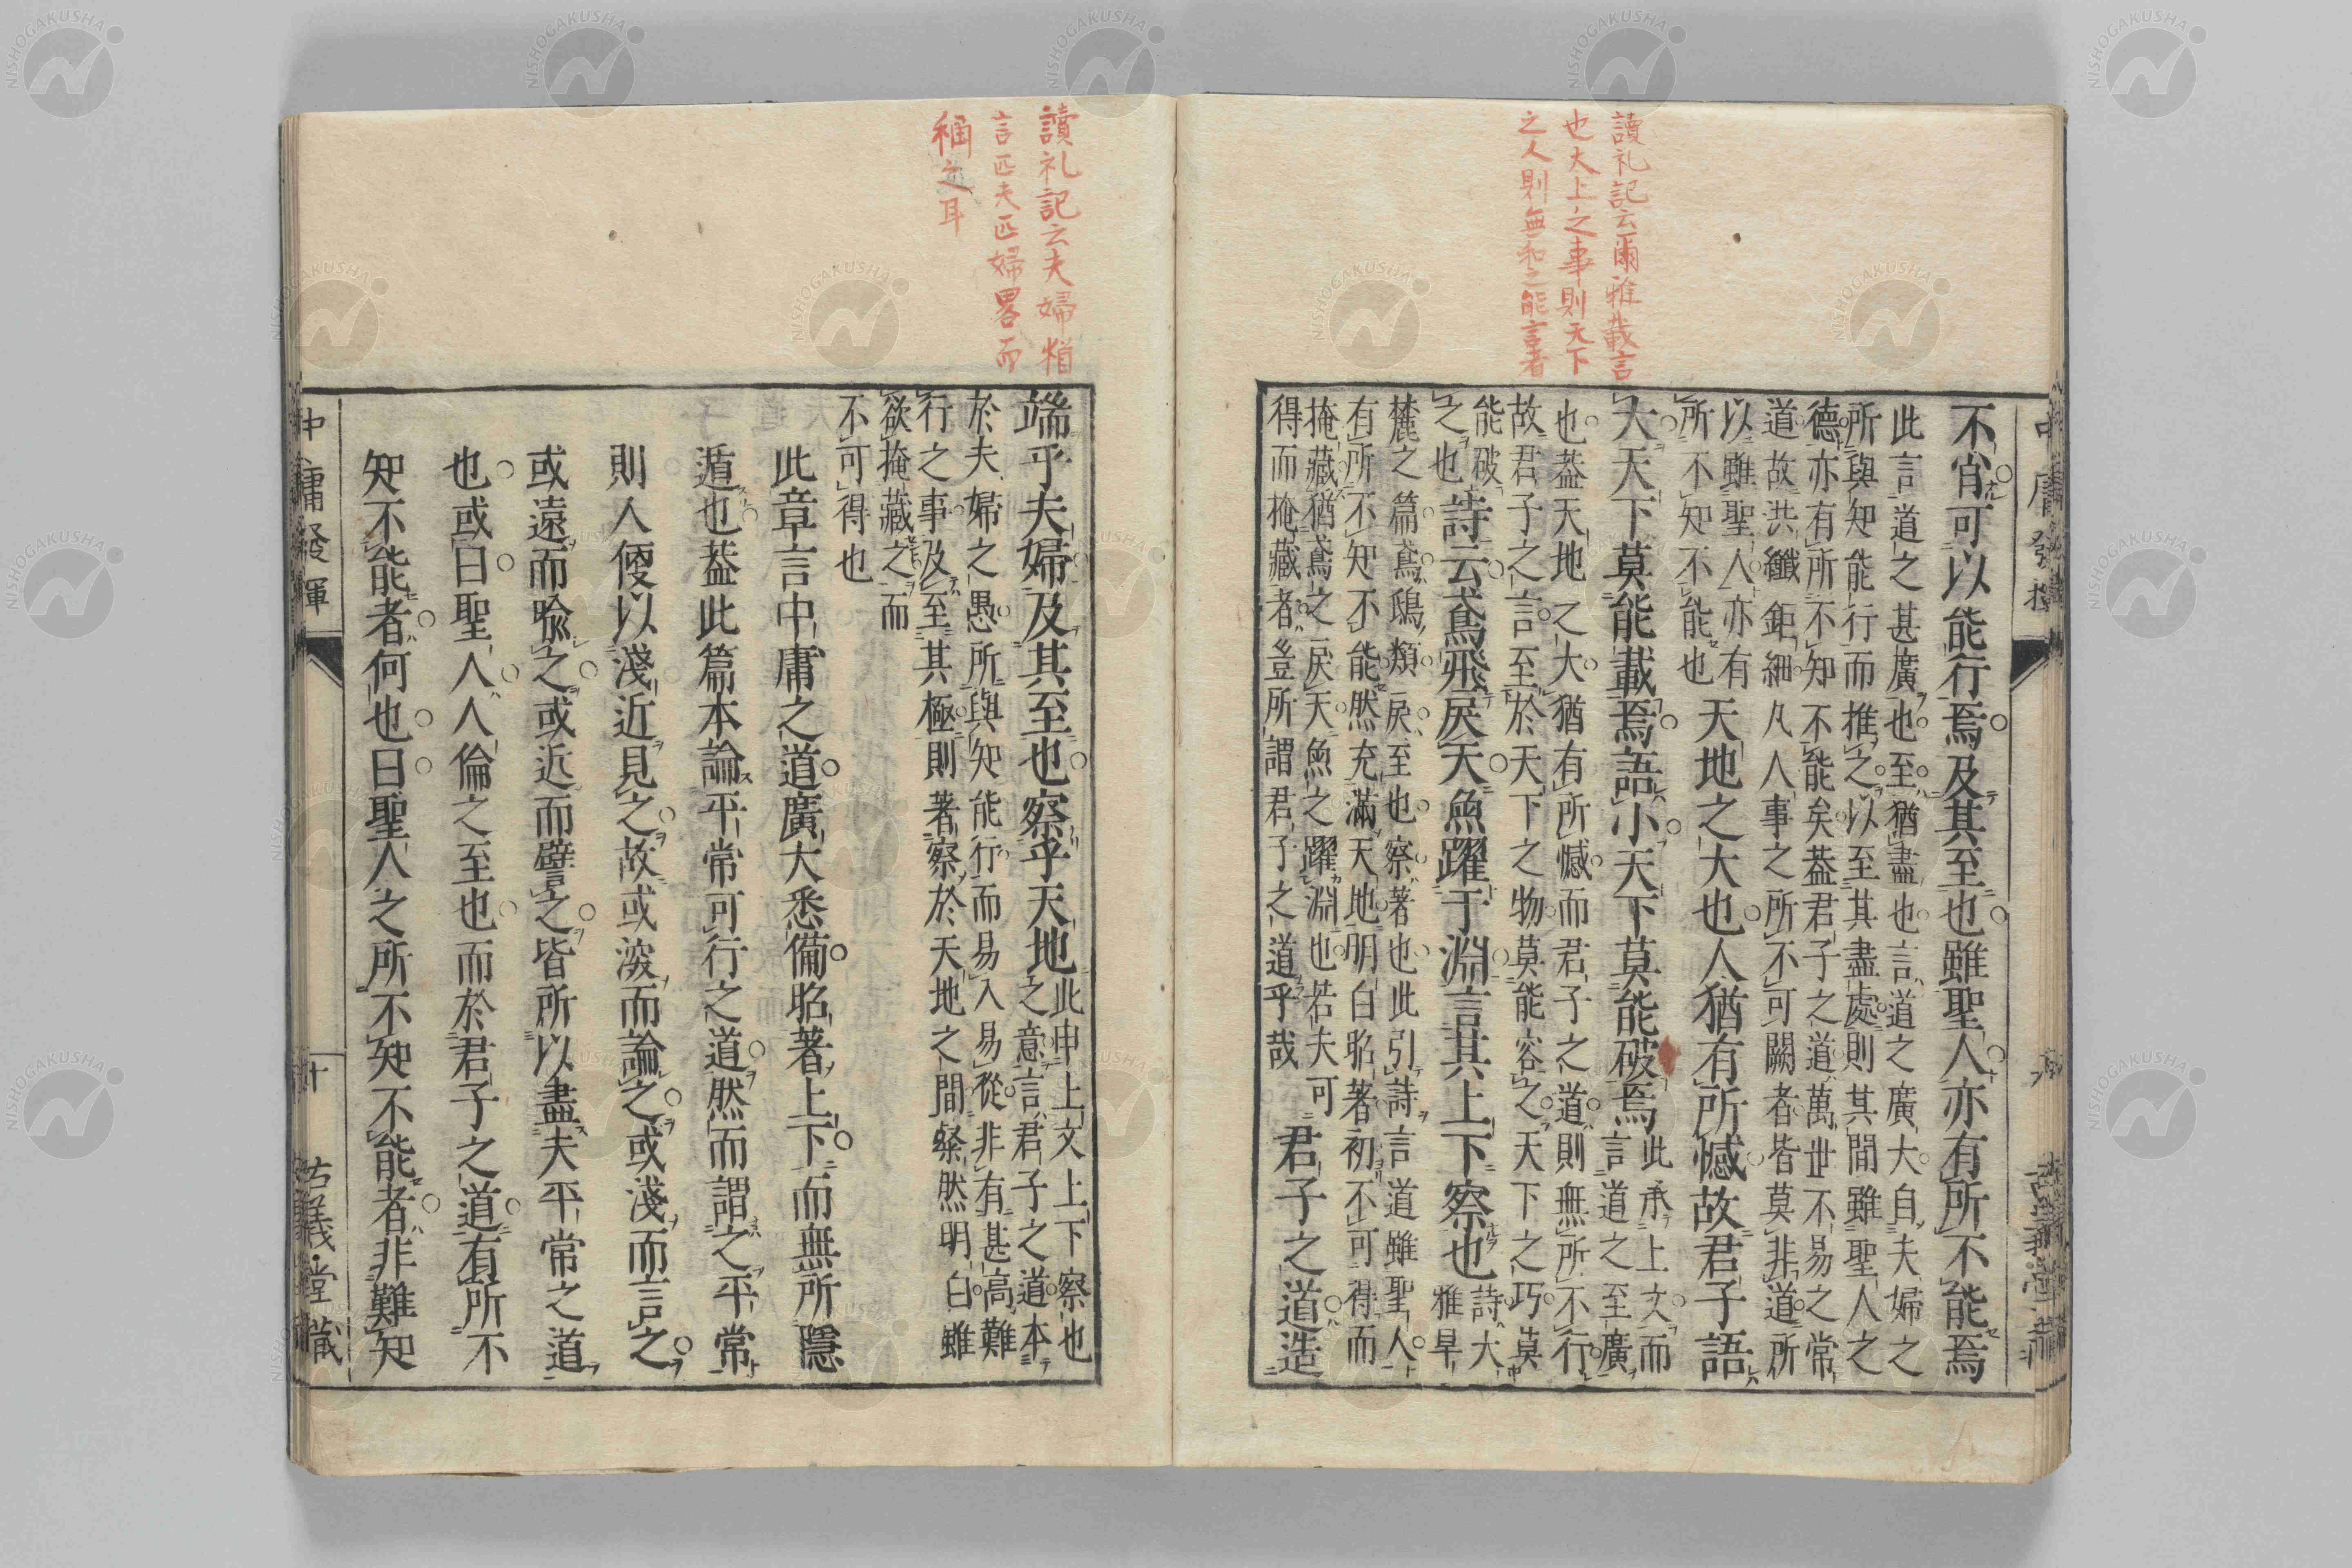 讀礼記云爾雅載言
也大上之事則天下
之人則無和之能言者
中庸發揮
九
古義堂藏
不肖可以能行焉及其至也雖聖人亦有所不能焉
此言道之甚廣也至猶盡也言道之廣大自夫婦之
所與知能行而推之以至其盡處則其間雖聖人之
德亦有所不知不能矣蓋君子之道萬世不易之常
道故洪纖鉅細凡人事之所不可闕者皆莫非道所
以雖聖人亦有
所不知不能也
天地之大也人猶有所憾故君子語
大天下莫能載焉語小天下莫能破焉
此承上文而
言道之至廣
也蓋天地之大猶有所憾而君子之道則無所不行
故君子之言至於天下之物莫能容之天下之巧莫
能破
之也
詩云鳶飛戾天魚躍于淵言其上下察也
詩大
雅旱
麓之篇鳶鴟類戾至也察著也此引詩言道雖聖人
有所不知不能然充滿天地明白昭著初不可得而
掩藏猶鳶之戾天魚之躍淵也若夫可
得而掩藏者豈所謂君子之道乎哉
君子之道造
讀礼記云夫婦猶
言匹夫匹婦畧而
稱之耳
端乎夫婦及其至也察乎天地
此申上文上下察也
之意言君子之道本
於夫婦之愚所與知能行而易入易從非有甚高難
行之事及至其極則著察於天地之間粲然明白雖
欲掩藏之而
不可得也
此章言中庸之道廣大悉備昭著上下而無所隱
遁也蓋此篇本論平常可行之道然而謂之平常
則人便以淺近見之故或深而論之或淺而言之
或遠而喩之或近而譬之皆所以盡夫平常之道
也或曰聖人人倫之至也而於君子之道有所不
知不能者何也曰聖人之所不知不能者非難知
中庸發揮
十
古義堂藏
NISHOGAKUSHA